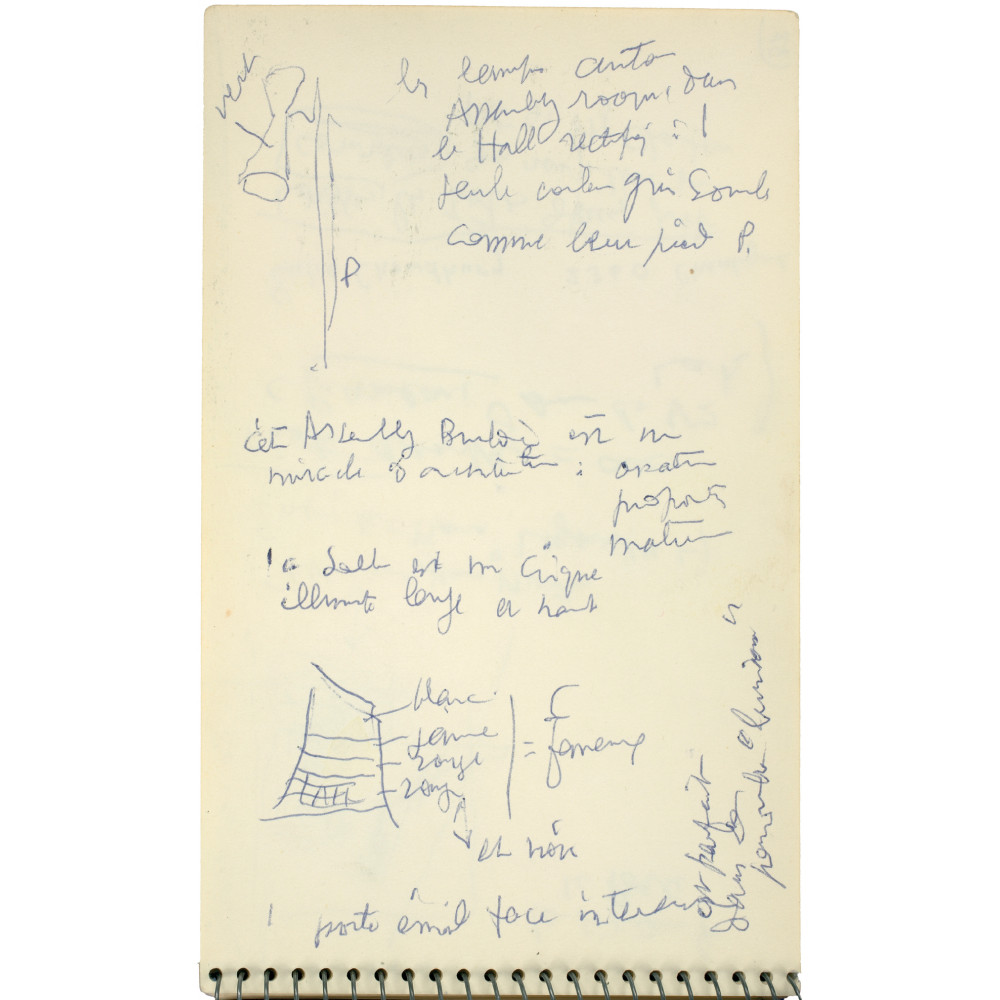 vert
les lamp auto
Assembly rooms, dans
le Hall rectifier : !
seule couleur gris sombre
comme leur pied P.
P
Cet Assembly Building est un
miracle d'architecture : 
proports
matière
! la Salle est un Cirque
illimité large et haut
blanc
jaune
rouge
rouge
=
fameux
et noir
! porte émail face interieure
est parfait
dans la